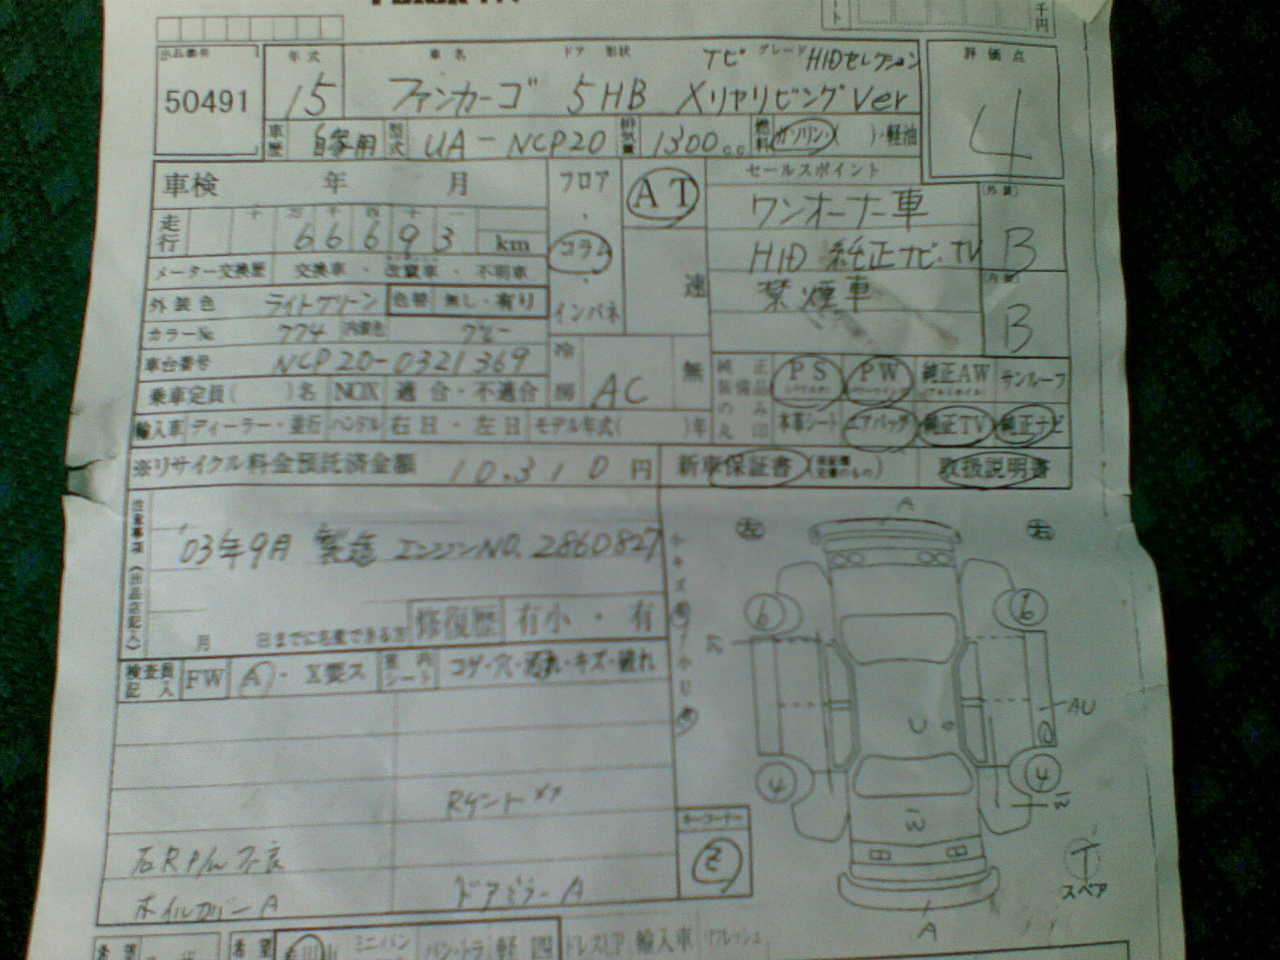 千円
出品番号 年式 車名 ドア 形状 グレード 評価点
50491 15 ファンカーゴ 5HB Xリヤリビング Ver 4
ナビ HIDセレクション
車歴 自家用 型式 UA-NCP20 排気量 1300cc 燃料 ガソリン・( )・軽油
車検 年 月 フロア・コラム・インパネ AT 速 セールスポイント
ワンオーナー車
HID 純正ナビ・TV
禁煙車
外装 B
内装 B
走行 66693 km
メーター交換歴 交換車・改竄車・不明車
外装色 ライトグリーン 色替 無し・有り
カラーNo. 774 内装色 グレー
車台番号 NCP20-0321369 冷房 AC 無
乗車定員( )名 NOX 適合・不適合
純正装備品のみ○印 PS PW 純正AW サンルーフ
本革シート エアバッグ 純正TV 純正ナビ
輸入車 ディーラー・並行 ハンドル 右H・左H モデル年式( )年
※リサイクル料金預託済金額 10,310円 新車保証書 取扱説明書
注意事項(出品店記入)
'03年9月 製造 エンジンNO. 2860827
月 日までに名変できる方 修復歴 有小・有
検査員記入 FW A・X要ス 室内シート コゲ・穴・汚れ・キズ・破れ
左 右
A
6 6
AU
U
4 4
W
W
A
スペア
Rゲント
石RP/W不良
ホイルカバーA ドアミラーA
キーコーナー
2
希望 希望 ミニバン バン・トラ 軽 四 ドレスアP 輸入車 リフレッシュ